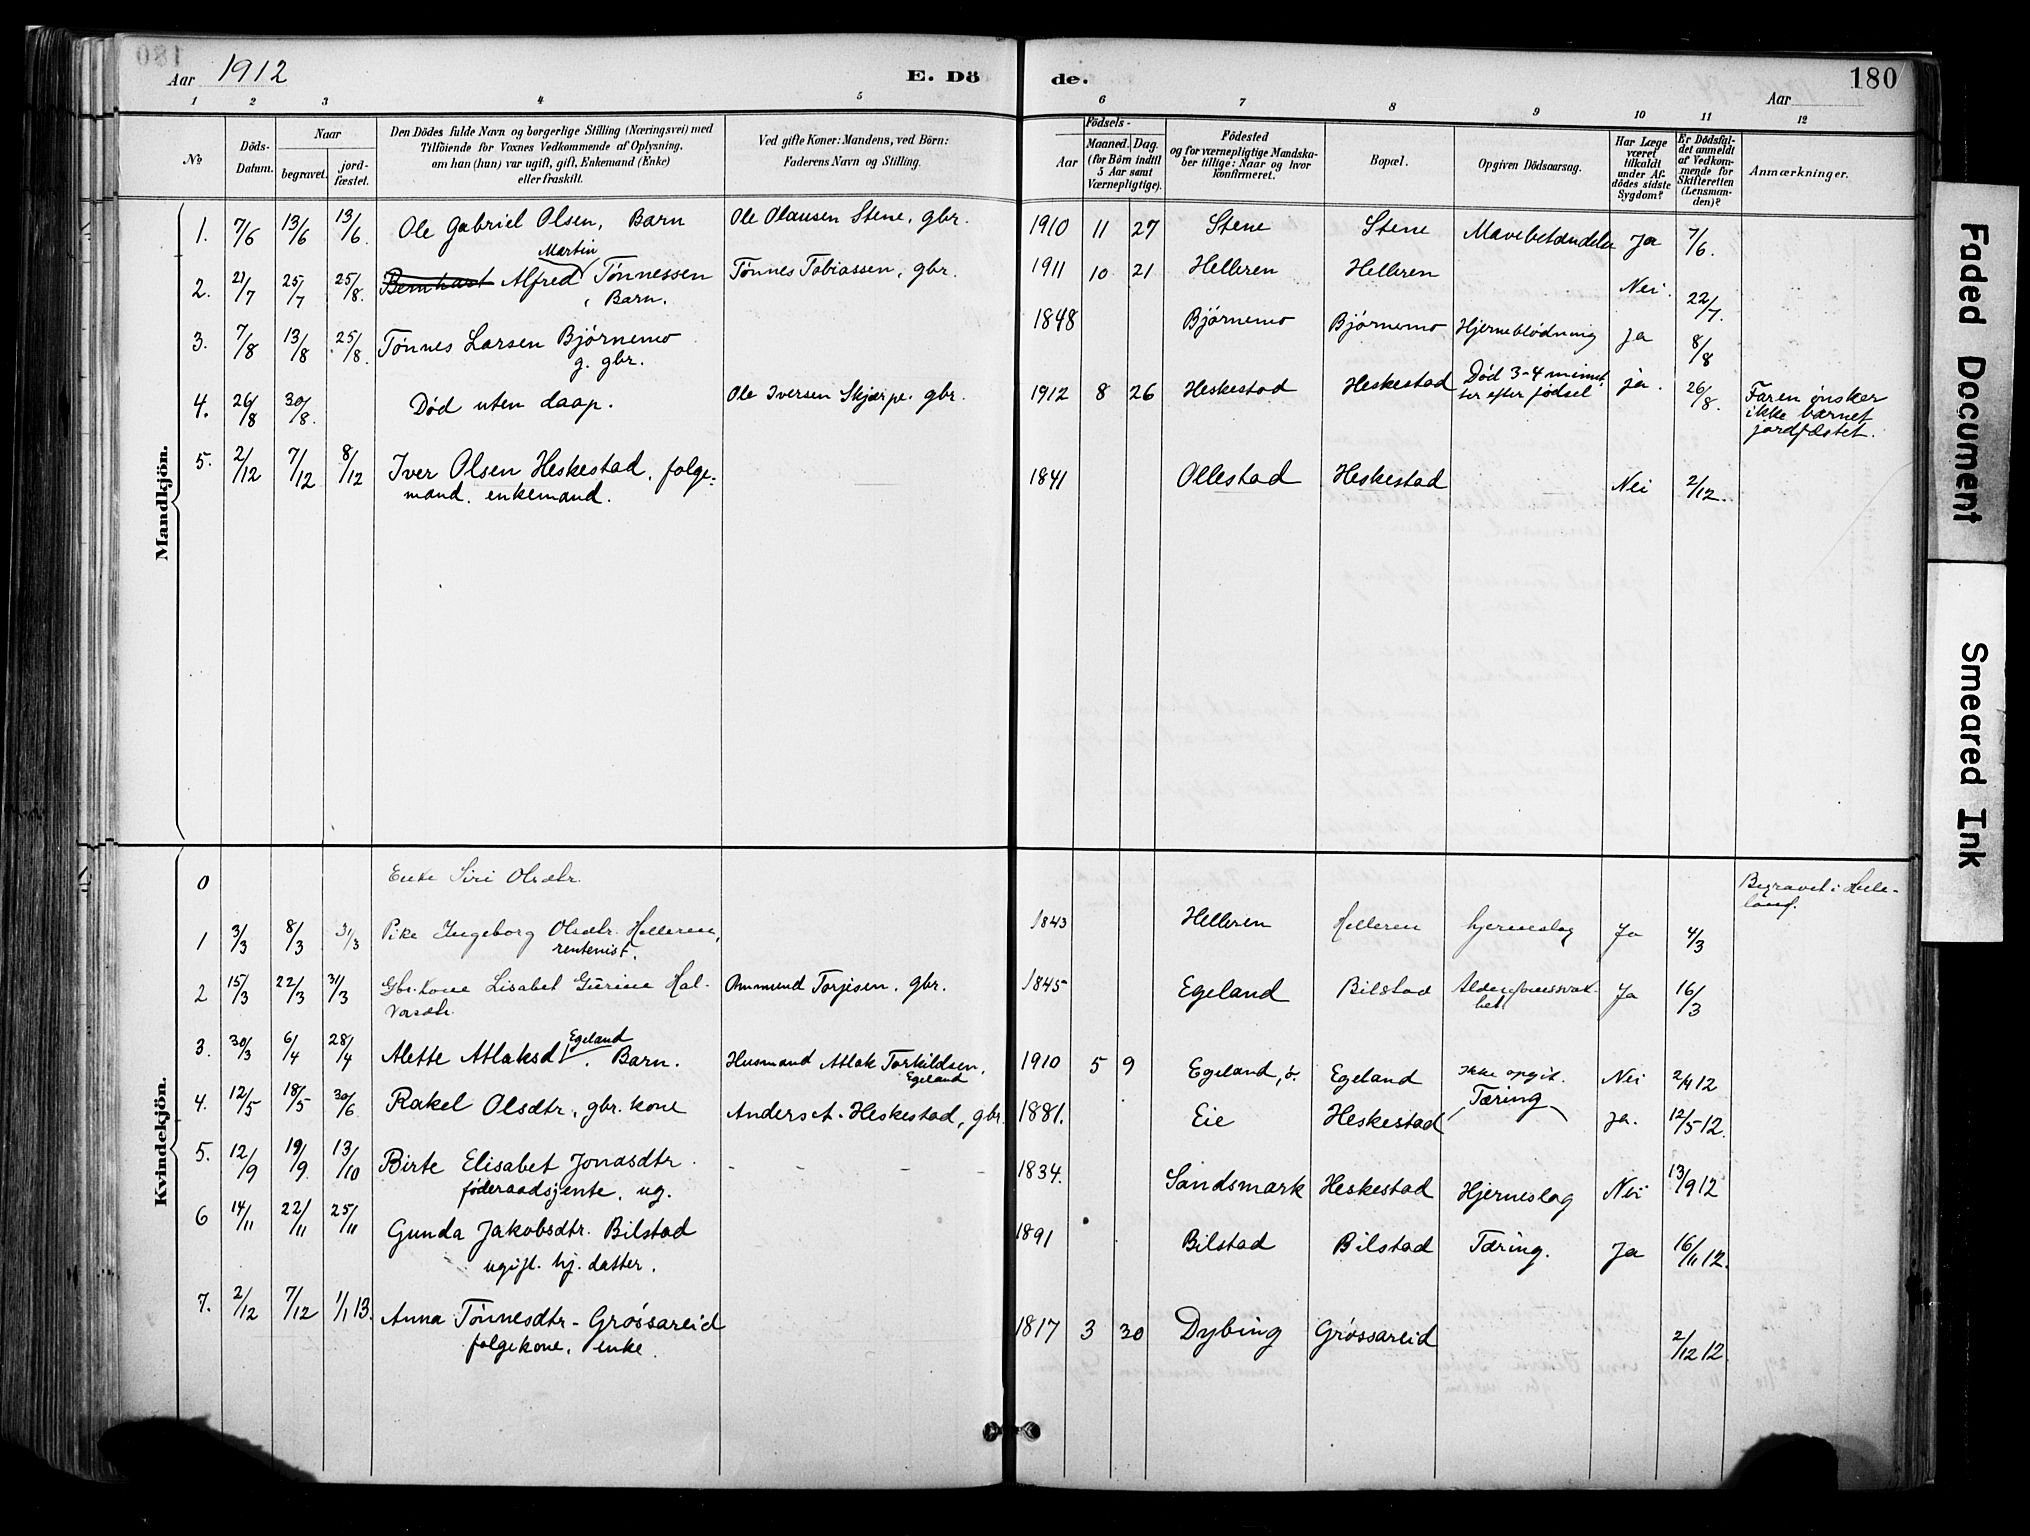 180
Aar 1912
E. Dö de.
180
Aar
1 2 3 4 5 6 7 8 9 10 11 12
No
Döds-Datum.
Naar begravet. jordfæstet.
Den Dödes fulde Navn og borgerlige Stilling (Næringsvei) med
Tilföiende for Voxnes Vedkommende af Oplysning,
om han (hun) var ugift, gift, Enkemand (Enke)
eller fraskilt.
Ved gifte Koner: Mandens, ved Börn:
Faderens Navn og Stilling.
Födsels-
Aar Maaned. Dag.
(for Börn indtil 5 Aar samt Værnepligtige).
Födested
og for værnepligtige Mandskaber tillige: Naar og hvor konfirmeret.
Bopæl.
Opgiven Dödsaarsag.
Har Læge været tilkaldt under Afdödes sidste Sygdom?
Er Dödsfaldet anmeldt af Vedkommende for Skifteretten (Lensmanden)?
Anmærkninger.
Mandkjön.
1. 7/6 13/6 13/6. Ole Gabriel Olsen, Barn Ole Olausen Stene, gbr. 1910 11 27 Stene Stene Mavebetændelse Ja 7/6.
Martin
2. 21/7 25/7 25/8. Bernhart Alfred Tønnessen Tønnes Tobiassen, gbr. 1911 10 21 Helleren Helleren Nei. 22/7.
Barn.
3. 7/8 13/8 25/8. Tønnes Larsen Bjørnemo 1848 Bjørnemo Bjørnemo Hjerneblødning Ja 8/8
g. gbr.
4. 26/8 30/8. Død uten daap. Ole Iversen Skjærpe. gbr. 1912 8 26 Heskestad Heskestad Død 3-4 minutter efter fødsel ja. 26/8. Faren ønsker
ikke barnet
jordfæstet.
5. 2/12 7/12 8/12 Iver Olsen Heskestad, folge= 1841 Ollestad Heskestad — Nei 2/12.
mand. enkemand.
Kvindekjön.
0 Enke Siri Olsdtr. Begravet i Helleland.
1 3/3 8/3 31/3 Pike Ingeborg Olsdtr. Helleren, 1843 Helleren Helleren hjerneslag Ja 4/3
rentenist.
2 15/3 22/3 31/3 Gbr.kone Lisabet Gurine Hal- Ommund Torjisen, gbr. 1845 Egeland Bilstad Ja 16/3
vorsdtr.
Egeland
3. 30/3 6/4 28/4 Alette Atlaksd. Barn. Husmand Atlak Torkildsen, 1910 5 9 Egeland, ø. Egeland Ikke opgit. Nei 2/4 12
Egeland
4. 12/5 18/5 30/6 Rakel Olsdtr, gbr. kone Anders A. Heskestad, gbr. 1881. Eie Heskestad Tæring ja. 12/5 12.
5. 12/9 19/9 13/10 Birte Elisabet Jonasdtr. - - - 1834. Sandsmark Heskestad Hjerneslag Nei 13/9 12
føderaadsjente, ug.
6 14/11 22/11 25/11 Gunda Jakobsdtr. Bilstad 1891 Bilstad Bilstad Tæring. Ja 16/11 12.
ugift. hj. datter.
7. 2/12 7/12 1/1 13. Anna Tønnesdtr - Grøssareid 1817 3 30 Dybing Grøssareid 2/12 12.
folgekone, enke.
Faded Document
Smeared Ink